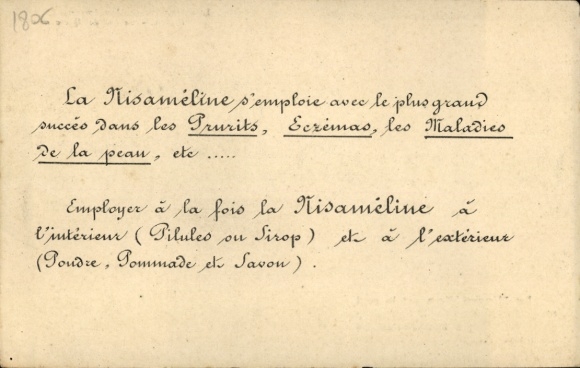 1806
La Nisaméline s'emploie avec le plus grand
succès dans les Prurits, Eczémas, les Maladies
de la peau, etc .....
Employer à la fois la Nisaméline à
l'intérieur (Pilules ou Sirop) et à l'extérieur
(Poudre, Pommade et Savon).